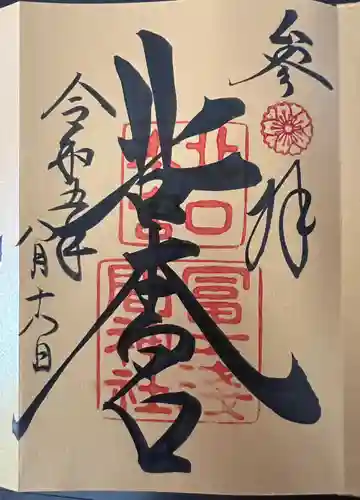 参拝
北口本宮
北口
本宮
冨士浅
間神社
令和五年
八月十六日